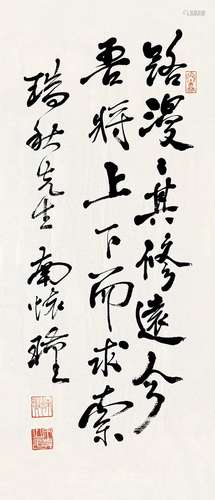 路漫〻其修遠兮
吾將上下而求索
瑞秋先生 南懷瑾